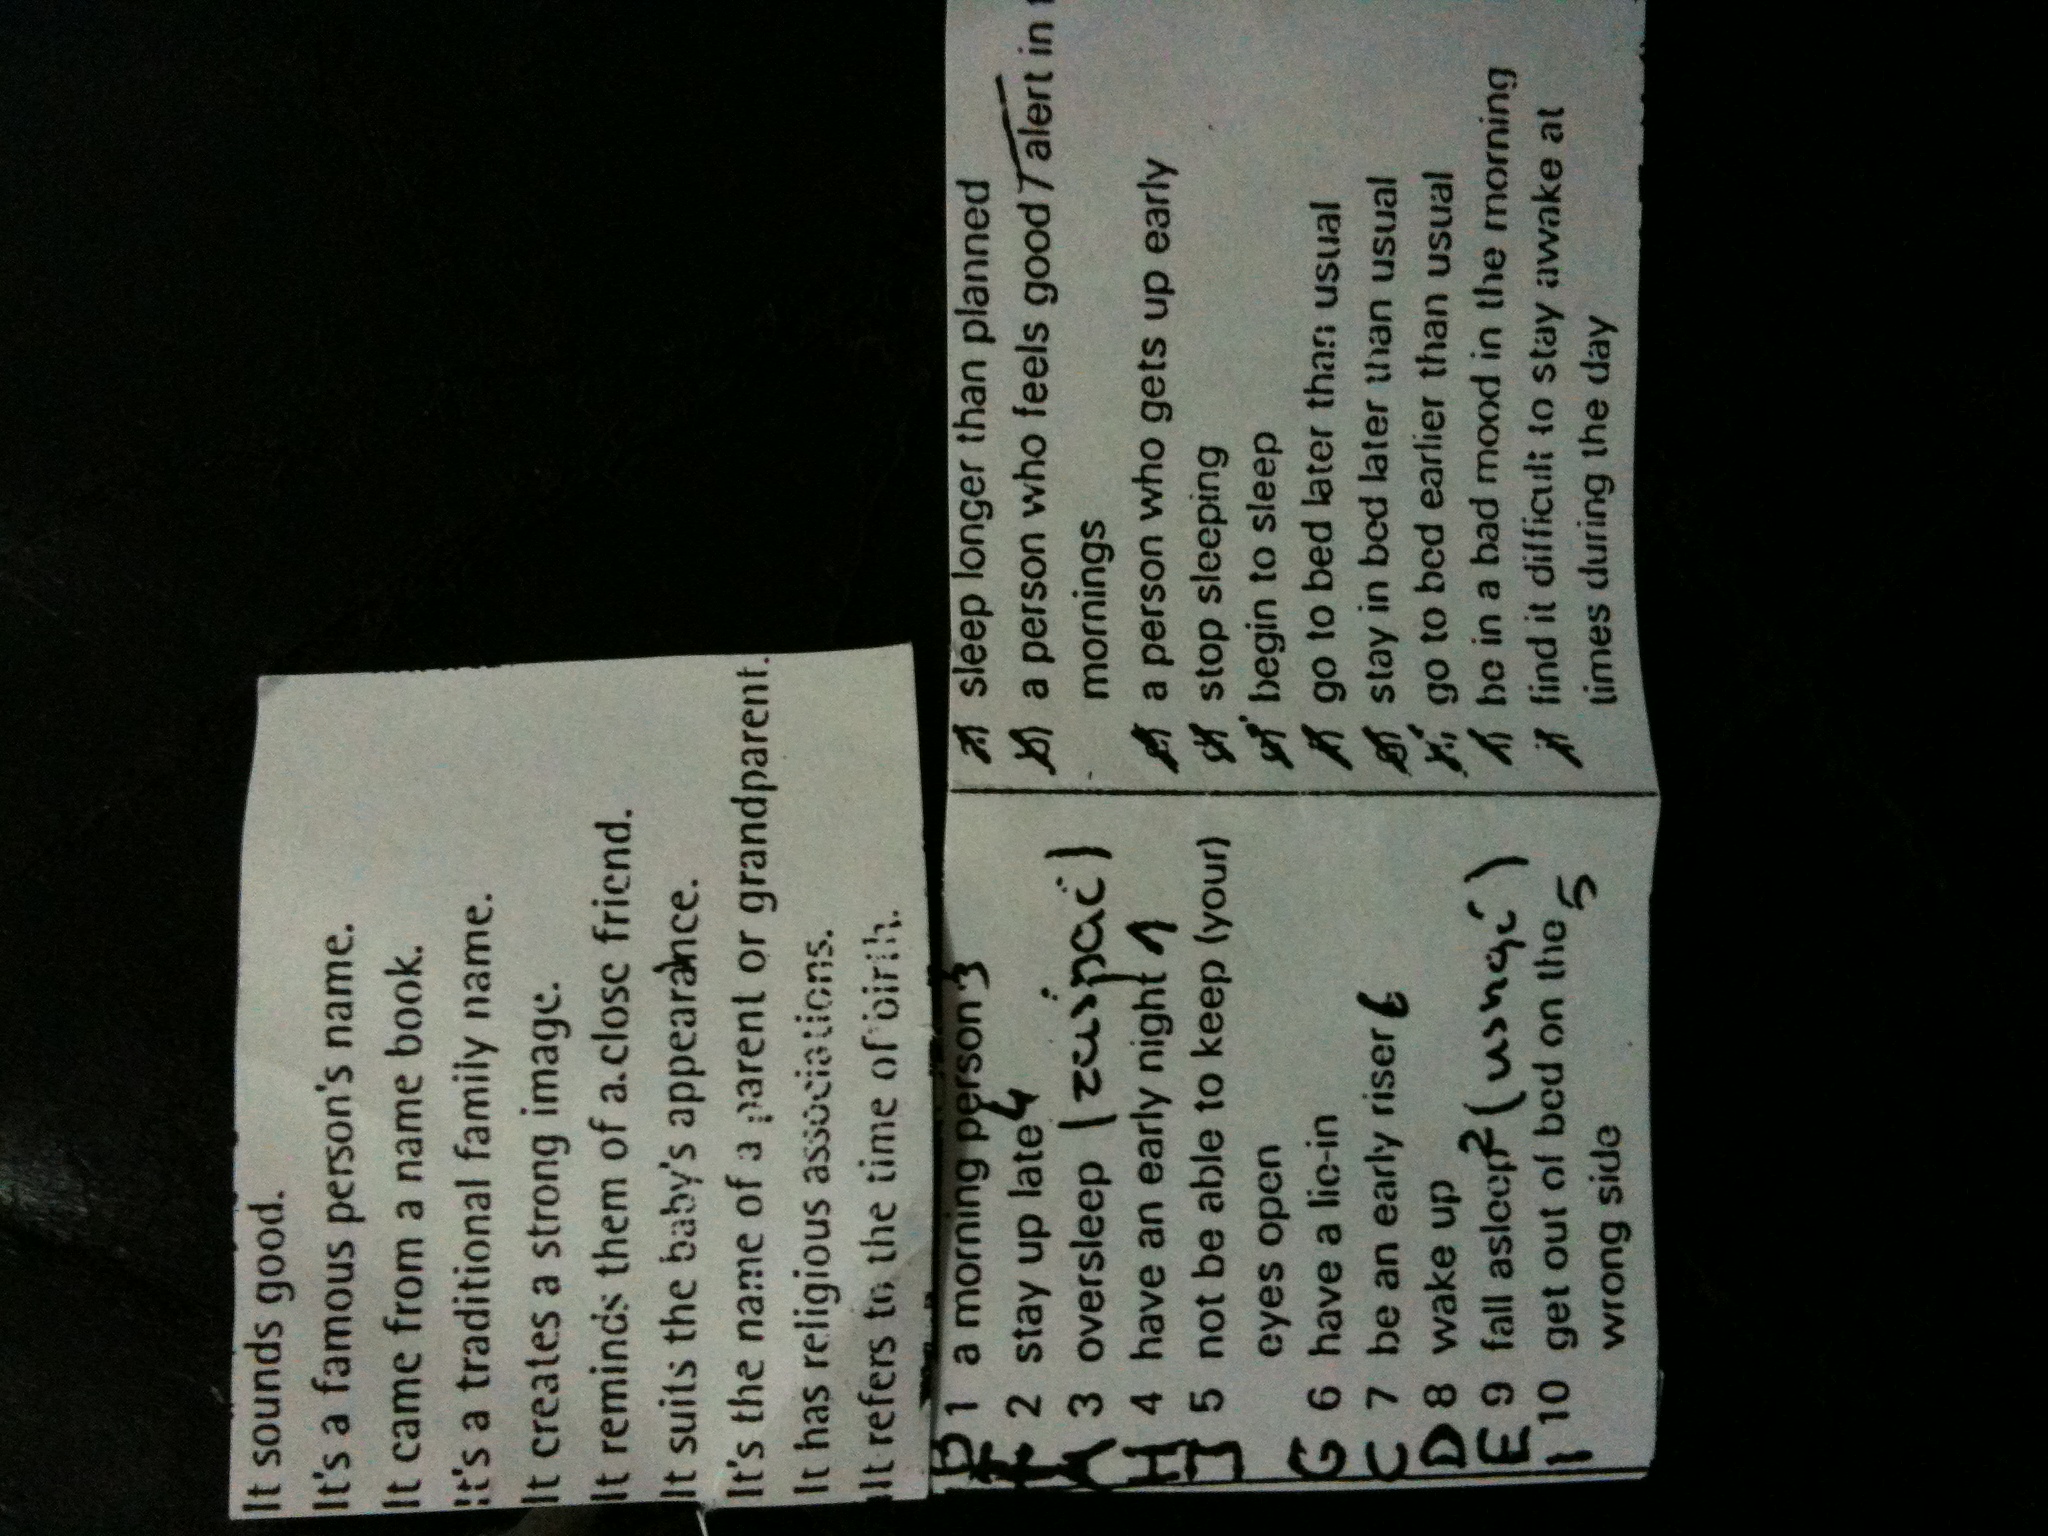 It sounds good.
It's a famous person's name.
It came from a name book.
It's a traditional family name.
It creates a strong image.
It reminds them of a close friend.
It suits the baby's appearance.
It's the name of a parent or grandparent.
It has religious associations.
It refers to the time of birth.
B 1 a morning person 3
F 2 stay up late 4
A 3 oversleep (zaspać)
H 4 have an early night 1
J 5 not be able to keep (your)
eyes open
G 6 have a lie-in
C 7 be an early riser 6
D 8 wake up
E 9 fall asleep 2 (usnąć)
I 10 get out of bed on the 5
wrong side
sleep longer than planned
a person who feels good / alert in
mornings
a person who gets up early
stop sleeping
begin to sleep
go to bed later than usual
stay in bed later than usual
go to bed earlier than usual
be in a bad mood in the morning
find it difficult to stay awake at
times during the day